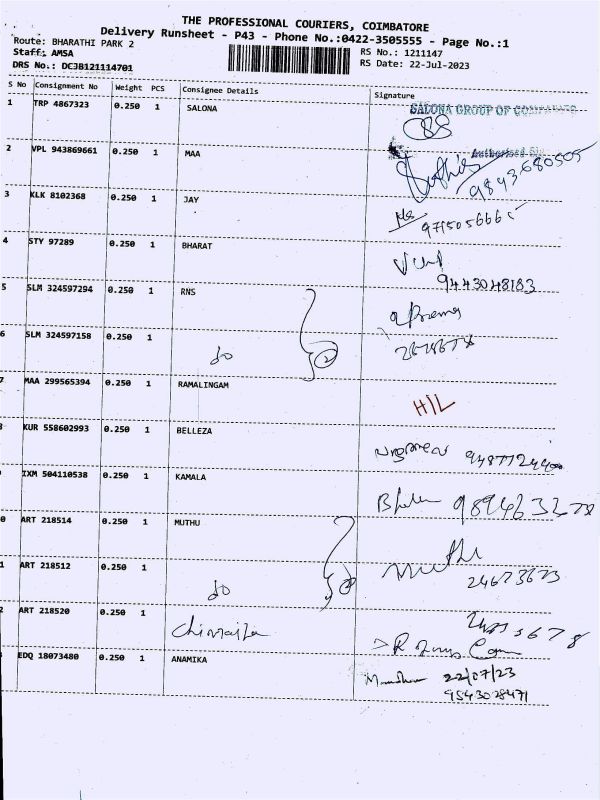 THE PROFESSIONAL COURIERS, COIMBATORE
Delivery Runsheet - P43 - Phone No.:0422-3505555 - Page No.:1
Route: BHARATHI PARK 2
RS No.: 1211147
Staff: AMSA
RS Date: 22-Jul-2023
DRS No.: DCJB121114701
S No Consignment No Weight PCS Consignee Details Signature
1 TRP 4867323 0.250 1 SALONA SALONA GROUP OF COMPANIES
2 VPL 943869661 0.250 1 MAA 9843680505
3 KLK 8102368 0.250 1 JAY
4 STY 97289 0.250 1 BHARAT
9443048183
5 SLM 324597294 0.250 1 RNS
6 SLM 324597158 0.250 1 do 2
7 MAA 299565394 0.250 1 RAMALINGAM H/L
8 KUR 558602993 0.250 1 BELLEZA
9 IXM 504110538 0.250 1 KAMALA
0 ART 218514 0.250 1 MUTHU
1 ART 218512 0.250 1 do Muthu
24673673
2 ART 218520 0.250 1
3 EDQ 18073480 0.250 1 ANAMIKA 22/07/23
9543028471